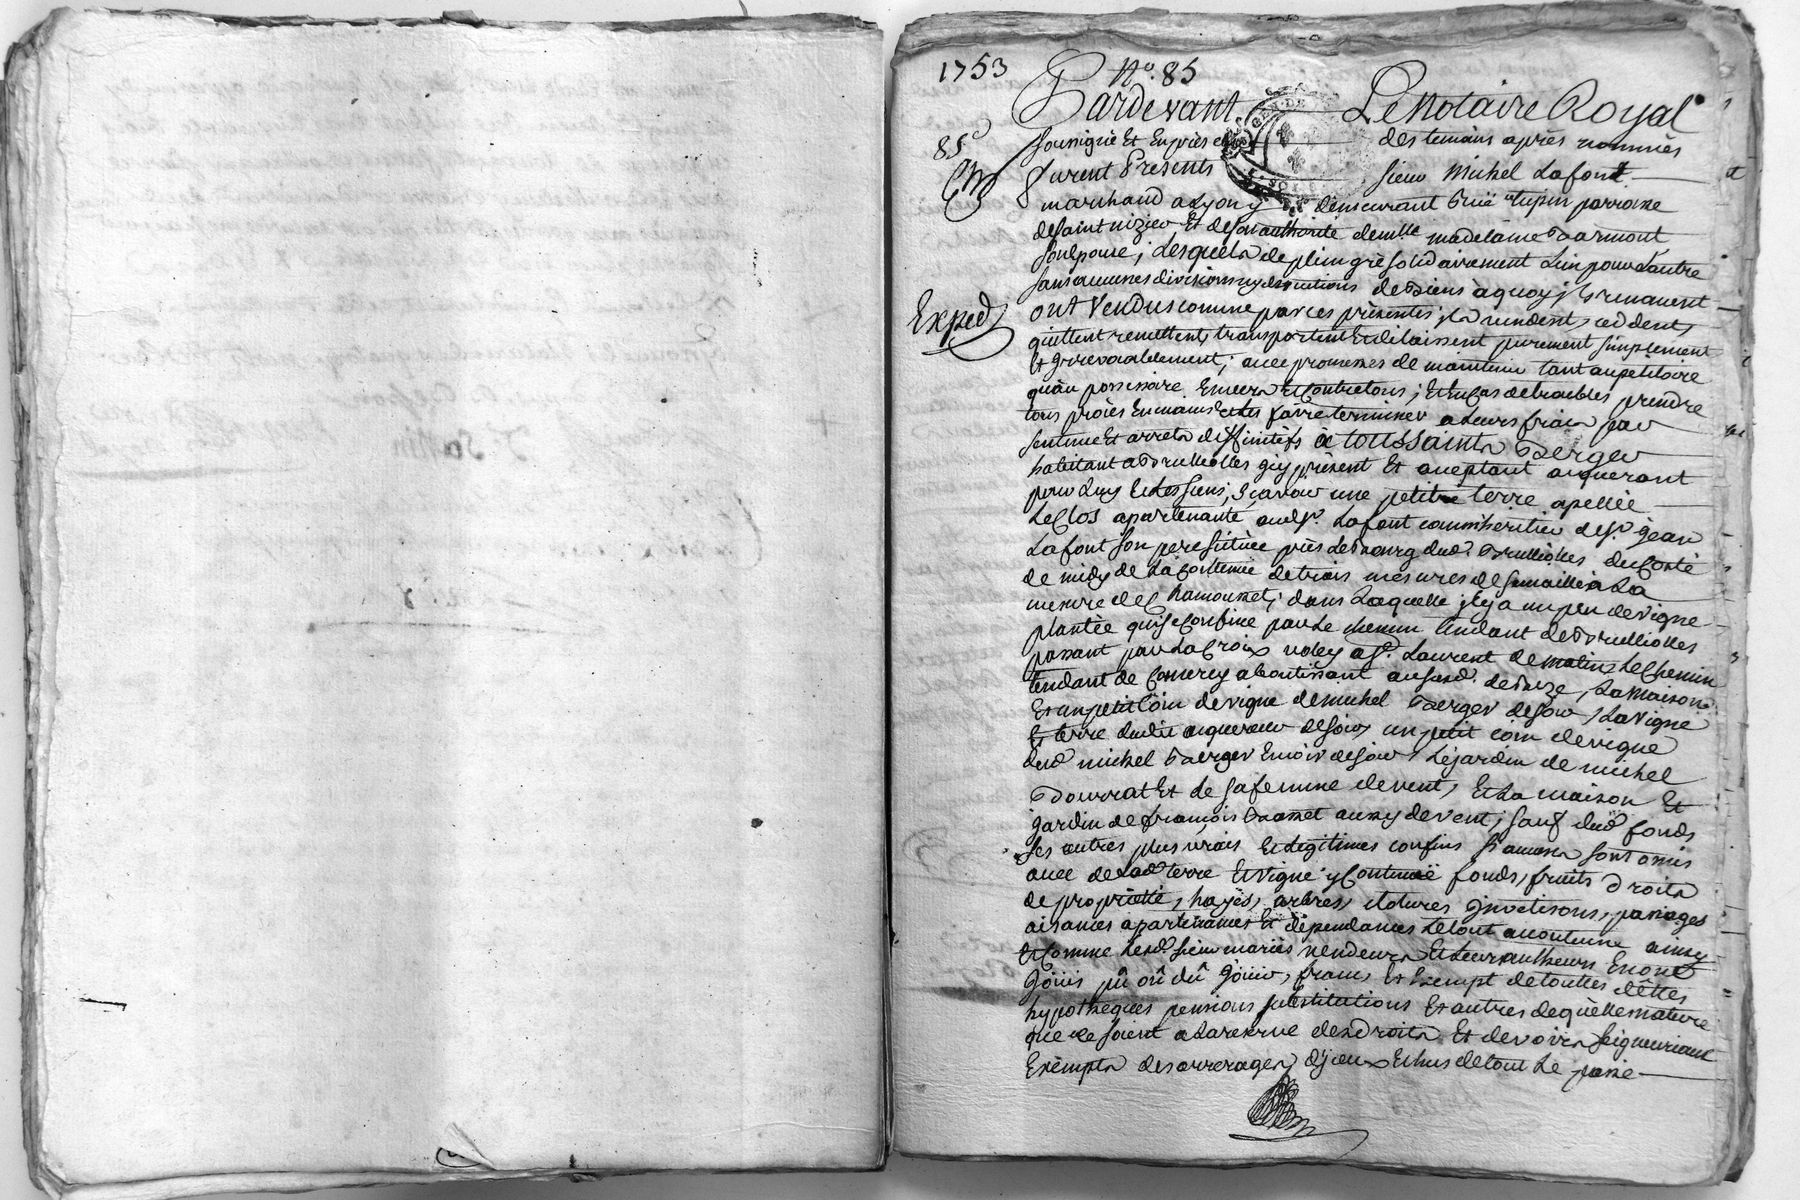 1753 N.º 85
Pardevant Le Notaire Royal
85e
soussigné Et En présence des temoins après nommés
furent Presents sieur Michel Lafont
marchand a Lyon y demeurant Ruë tupin parroisse
de saint nizier Et de son authorité demlle madelaine
son Epouse, Lesquels de plein gré solidairement L'un pour L'autre
sans aucunes divisions ny discutions de Biens à quoy ils renoncent
Exped
ont Vendus comme par ces présentes ils vendent, ceddent,
quittent remettent, transportent Et délaissent purement simplement
Et Irrevocablement, avec promesses de maintenir tant au petitoire
qu'au possessoire Envers Et Contre tous; Et En Cas de troubles prendre
tous procès En mains Et Les faire terminer a Leurs frais par
sentence Et arrets diffinitifs à toussaints Berger
habitant a Brullioles ycy présent Et acceptant acquerant
pour Luy Et Les siens, Sçavoir une petitte terre apellée
Le Clos apartenante audt Sr. Lafont comme heritier de Sr. jean
Lafont son pere sittuée près Le Bourg dud. Brullioles du Costé
de midy de La Contenüe de trois mesures de semailles a La
mesure de Chamousset, dans Laquelle il y a un peu de vigne
plantée qui se Confine par Le chemin tendant de Brullioles
passant par La Croix a Sr. Laurent de matin, Le Chemin
tendant de aboutissant au susd. de Bize, La maison
Et un petit Coin de vigne de michel Berger de soir, La vigne
Et terre dudit acquereur de soir, un petit coin de vigne
dud michel Berger Encoir de soir, Le jardin de michel
Bourrat Et de sa femme de vent, Et La maison Et
jardin de françois aussy de vent, sauf dud fonds
ses autres plus vrais Et Legitimes confins si aucuns sont omis
avec de Lad. terre Et vigne y Contenüe fonds, fruits droits
de proprietté, hayes, arbres, clotures Invetisons, passages
aisances apartenances Et dépendances Le tout accoutumé ainsy
Et Comme Lesd. sieur mariés vendeurs Et Leurs autheurs En ont
Joüis pû où dû joüir, franc, Et Exempt de touttes dêttes
hypotheques pensions substitutions Et autres de quèlle nature
que ce soient a La reserve des droits Et devoirs seigneuriaux
Exempts des arrerages d'yceux Echus de tout Le passé